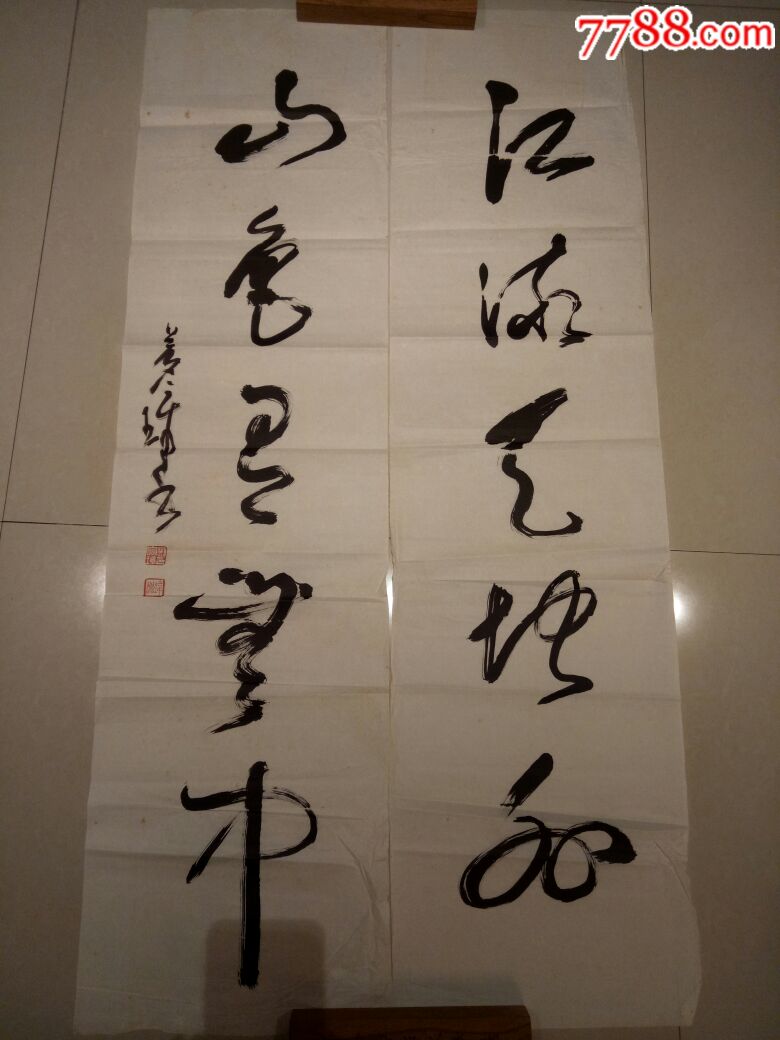 江流天地外
山色有无中
7788.com